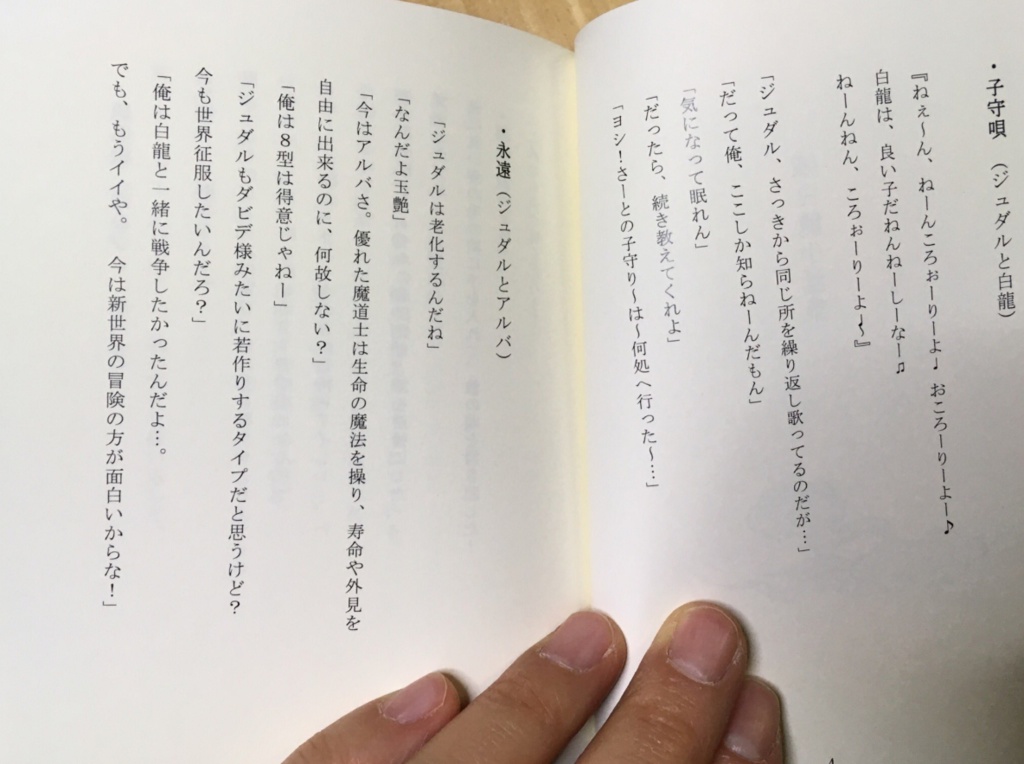 ・子守唄（ジュダルと白龍）
『ねぇ～ん、ねーんころぉーりーよ♩おころーりーよー♪
白龍は、良い子だねんねーしーなー♫
ねーんねん、ころぉーりーよ～』
「ジュダル、さっきから同じ所を繰り返し歌ってるのだが…」
「だって俺、ここしか知らねーんだもん」
「気になって眠れん」
「だったら、続き教えてくれよ」
「ヨシ！さーとの子守り～は～何処へ行った～…」
4
・永遠（ジュダルとアルバ）
「ジュダルは老化するんだね」
「なんだよ玉艶」
「今はアルバさ。優れた魔道士は生命の魔法を操り、寿命や外見を
自由に出来るのに、何故しない？」
「俺は８型は得意じゃねー」
「ジュダルもダビデ様みたいに若作りするタイプだと思うけど？
今も世界征服したいんだろ？」
「俺は白龍と一緒に戦争したかったんだよ…。
でも、もうイイや。今は新世界の冒険の方が面白いからな！」